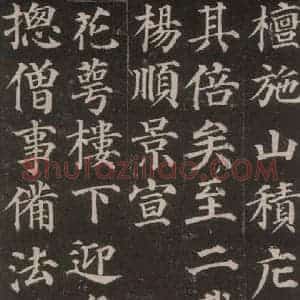 檀施山積庀
其倍矣至二
楊順景宣
花萼樓下迎
摠僧事備法
Shufaziliao.COM